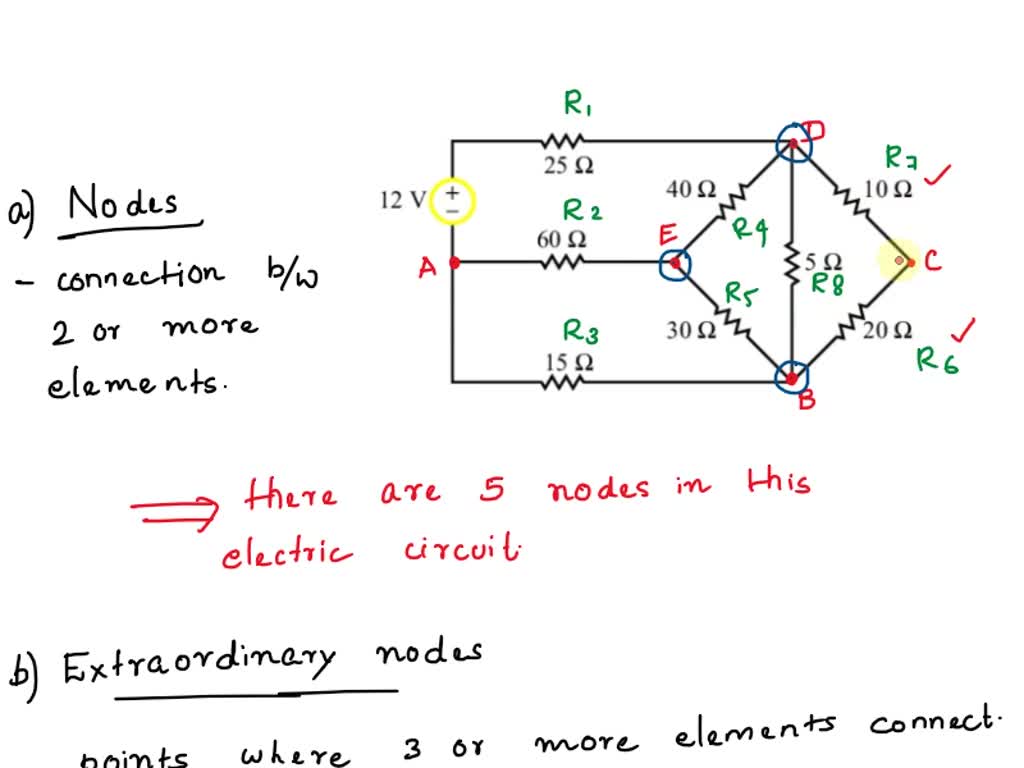 a) Nodes
- connection b/w
2 or more
elements.
R1
25 Ω
12 V
+
−
R2
60 Ω
A
R3
15 Ω
D
R7
10 Ω
40 Ω
R4
E
5 Ω
R8
C
R5
30 Ω
20 Ω
R6
B
⇒ there are 5 nodes in this
electric circuit.
b) Extraordinary nodes
points where 3 or more elements connect.